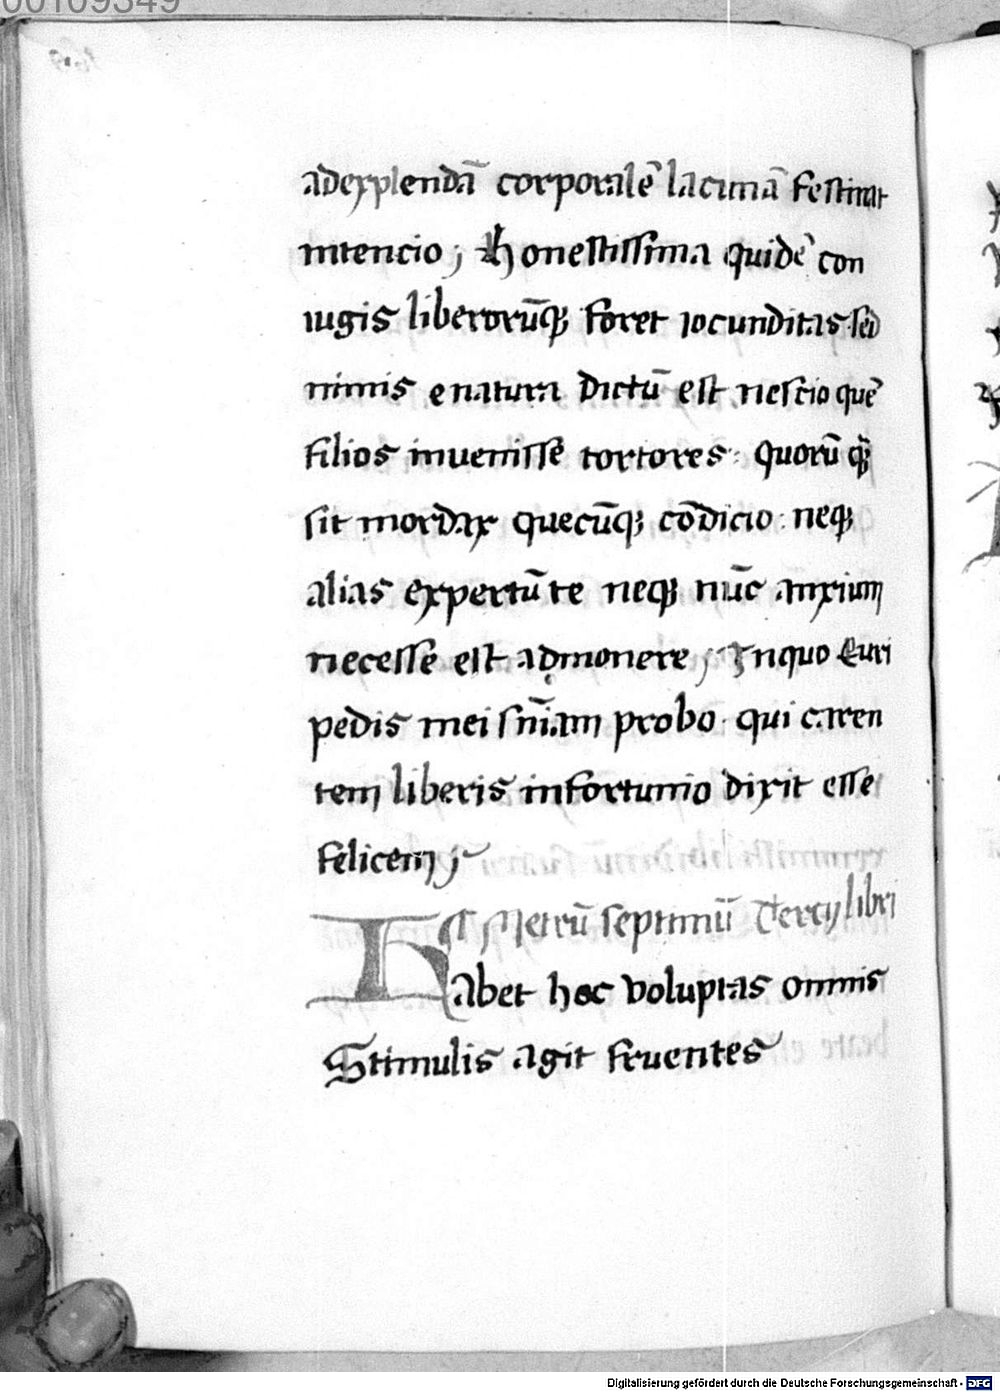 00109349
adexplendā corporalē lacunā festinat
intencio ; Honestissima quidē con
iugis liberorūq; foret iocunditas sed
nimis e natura dictū est nescio quē
filios inuenisse tortores quorū q̄
sit mordax quecūq; cōdicio neq;
alias expertū te neq; nūc anxium
necesse est admonere ; Inquo Euri
pedis mei snīam probo qui caren
tem liberis infortunio dixit esse
felicem ;
Metrū septimū Tercij libri
Habet hoc voluptas omnis
Stimulis agit fruentes
Digitalisierung gefördert durch die Deutsche Forschungsgemeinschaft - DFG